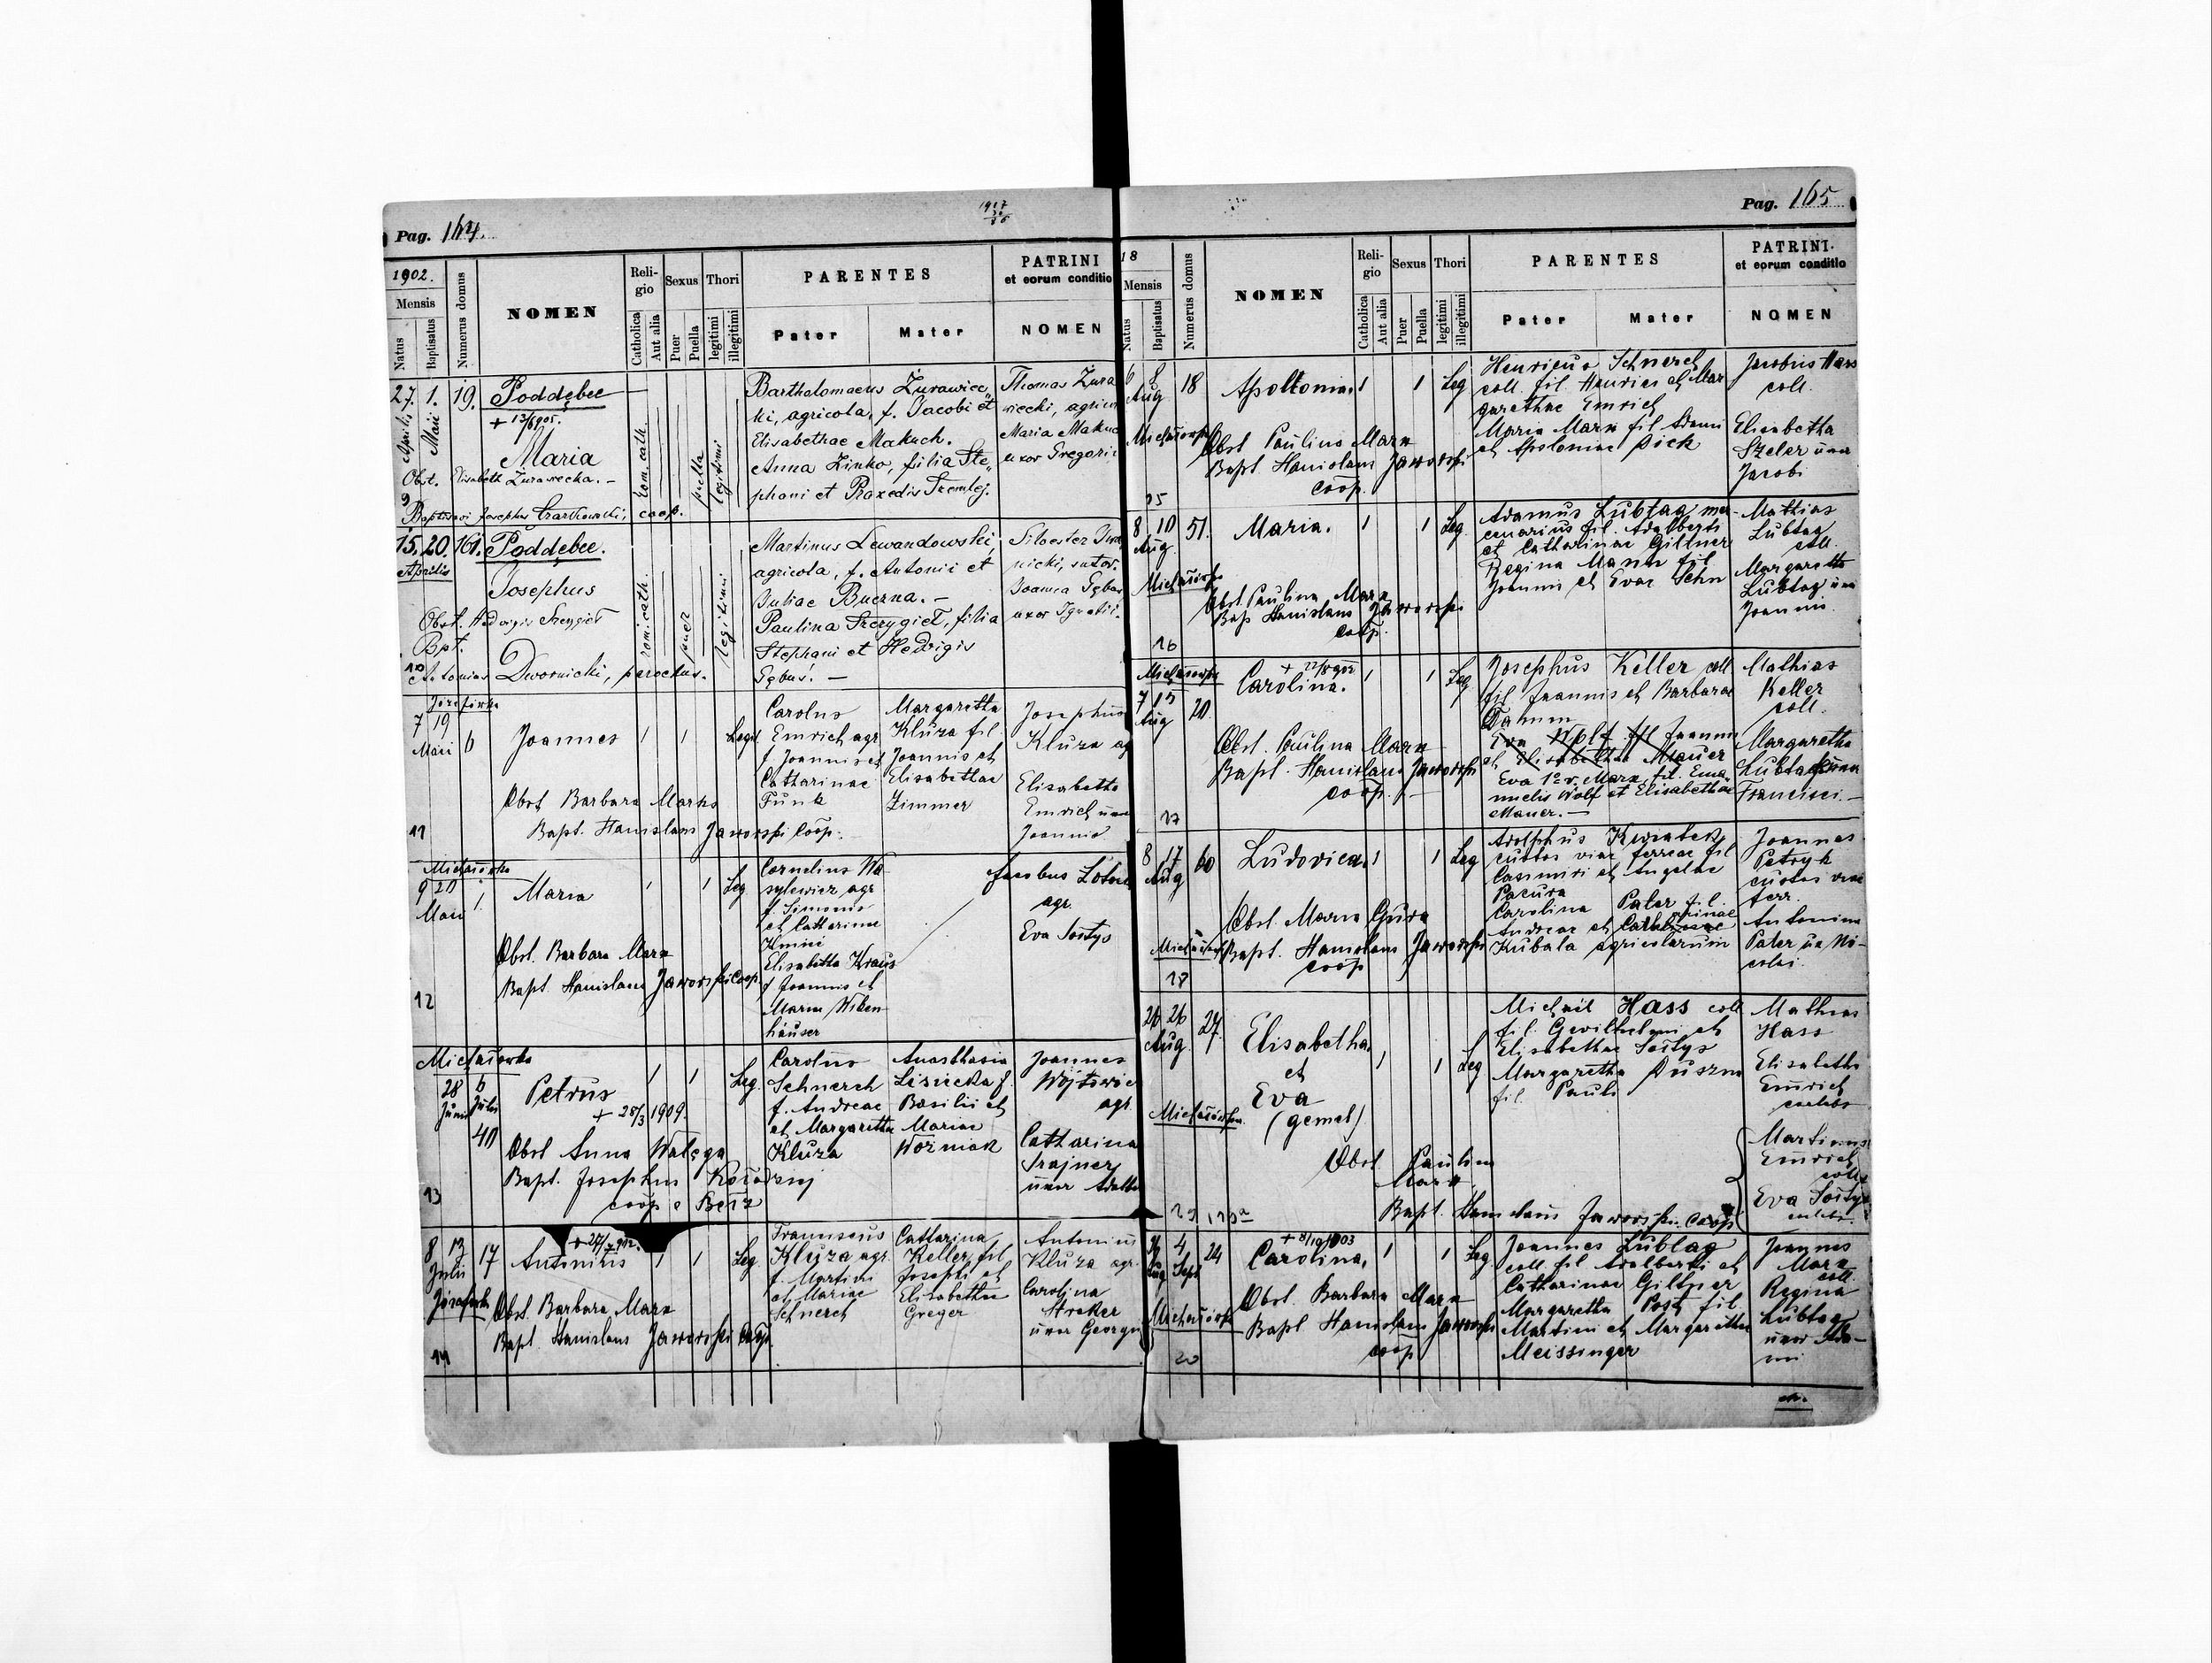 Pag. 164.
1902.
Mensis
Natus
Baptisatus
Numerus domus
NOMEN
Religio
Catholica
Aut alia
Sexus
Puer
Puella
Thori
legitimi
illegitimi
PARENTES
Pater
Mater
PATRINI
et eorum conditio
NOMEN
27. 1. 19. Poddębce
Aprilis Maii
Maria
Obst. Elisabeth Żurawecka. –
9
Baptisavi Josephus Czartkowski, coop.
rom. cath.
puella
legitimi
Bartholomaeus Żurawiec„
ki, agricola, f. Jacobi et
Elisabethae Makuch.
Anna Zinko, filia Ste„
phani et Praxedis Szemlej.
Thomas Żura
wiecki, agricu
Maria Makuc
uxor Gregorii
15. 20. 161. Poddębce.
Aprilis
Josephus
Obst. Hedvigis Szczygieł
Bpt.
10
Antonius Dwornicki, parochus.
rom. cath.
puer
legitimi
Martinus Lewandowski,
agricola, f. Antonii et
Juliae Buczna. –
Paulina Szczygieł, filia
Stephani et Hedvigis
Gębuś. –
Silvester Iwa
nicki, sutor.
Joanna Gębuś
uxor Ignatii.
Józefówka
7 19
Maii 6 Joannes 1 1 Legit
Obst Barbara Marks
Bapt. Stanislaus Jaworski Coop.
11
Carolus
Emrich agr
f Joannis et
Catharinae
Funk
Margaretta
Kluza fil
Joannis et
Elisabethae
Zimmer
Josephus
Kluza ag
Elisabetha
Emrich uxor
Joannis
Michałówka
9 20
Maii 1. Maria 1 1 Leg
Obst. Barbara Marx
Bapt Stanislaus Jaworski Coop.
12
Cornelius Wa
sylewicz agr
f. Simonis
et Catharinae
Elisabetha Kraus
f Joannis et
Mariae Wiken
häuser
Jacobus
agr.
Eva Sostys
Michałówka
28 6
Junii Julii
40
Petrus 1 1 Leg.
+ 28/3 1909.
Obst Anna Watęga
Bapt. Josephus
coop e Bełz
13
Carolus
Schnerch
f. Andreae
et Margaretta
Kluza
Anasthasia
Lisiecka f.
Basilii et
Mariae
Woźniak
Joannes
Wojtowic
agr
Catharina
Trajner
uxor Adalb
+ 27/7 902.
8 13 17 Antonius 1 1 Leg.
Julii
Józefówka
Obst. Barbara Marx
Bapt. Stanislaus Jaworski Coop.
14
Franciscus
Kluza agr
f. Martini
et Mariae
Schnerch
Catharina
Keller fil
Josephi et
Elisabethae
Greger
Antonius
Kluza agr
Carolina
Straker
uxor Georgii
Pag. 165
18
Mensis
Natus
Baptisatus
Numerus domus
NOMEN
Religio
Catholica
Aut alia
Sexus
Puer
Puella
Thori
legitimi
illegitimi
PARENTES
Pater
Mater
PATRINI
et eorum conditio
NOMEN
6 8 18 Apollonia. 1 1 Leg
Aug
Michałówka
Obst Paulina Marx
Bapt Stanislaus Jaworski
coop.
15
Henricus Schnerch
coll. fil. Henrici et Mar
garethae Emrich
Maria Marx fil Adami
et Apoloniae Pick
Jacobus Hass
coll.
Elisabetha
Szeler uxor
Jacobi
8 10 51. Maria. 1 1 Leg
Aug.
Michałówka
Obst. Paulina Marx
Bap Stanislaus Jaworski
coop.
16
Adamus Lubtag mer-
cenarius fil. Adalberti
et Catharinae Giltner
Regina Mann fil
Joannis et Evae Sehn
Mathias
Lubtag
coll.
Margaretta
Lubtag uxor
Joannis
Michałówka
7 15
Aug 20.
Carolina. 1 1 Leg
Obst. Paulina Marx
Bapt. Stanislaus Jaworski
coop.
17
Josephus Keller coll
fil Joannis et Barbarae
Damm
Eva Wolf fil Joannis
et Elisabethae Mauer
Eva 1º v. Marx, fil. Ema-
nuelis Wolf et Elisabethae
Mauer. –
Mathias
Keller
coll.
Margaretha
Lubtag uxor
Francisci. –
8 17 60 Ludovica. 1 1 Leg
Aug
Obst. Maria Gura
Michałówka
Bapt. Stanislaus Jaworski
coop
18
Adolphus
custos viae ferreae fil
Casimiri et Angelae
Pacura
Carolina Pater fil.
Andreae et Catharinae
Kubala agricolarum
Joannes
Petryk
custos viae
ferr.
Antonina
Pater ux Ni-
colai.
26 26 27
Aug.
Elisabetha. 1 1 Leg
et
Eva
(gemel)
Michałówka
Obst Paulina
Marx
Bapt. Stanislaus Jaworski Coop
19
Michael Hass coll
fil. Gevilhelmi et
Elisabethae Sostys
Margaretha
fil. Pauli
Mathias
Hass
Elisabetha
Emrich
caelebs
Martinus
Emrich
coll.
Eva Sostys
caelebs.
+ 8/10 1903
4 24 Carolina. 1 1 Leg.
Aug Sept
Michałówka
Obst. Barbara Marx
Bapt Stanislaus Jaworski
coop
20
Joannes Lubtag
coll. fil Adalberti et
Catharinae Giltner
Margaretha Post fil.
Martini et Margaretha
Meissinger
Joannes
Marx
coll.
Regina
Lubtag
uxor Ada-
mi